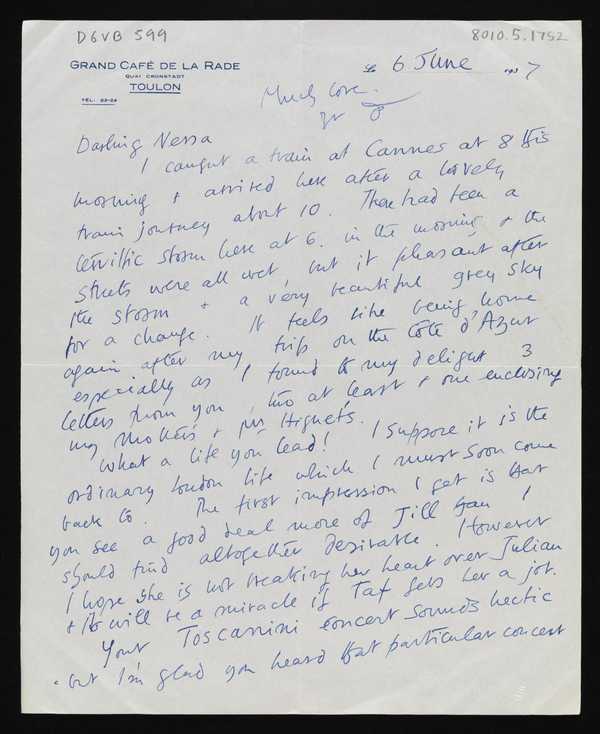 D6VB 599
8010.5.1752
GRAND CAFÉ DE LA RADE
QUAI CRONSTADT
TOULON
TEL: 23-24
Le 6 June 1937
Much love.
yr
Darling Nessa
I caught a train at Cannes at 8 this
morning & arrived here after a lovely
train journey about 10. There had been a
terriffic storm here at 6. in the morning & the
streets were all wet, but it pleasant after
the storm & a very beautiful grey sky
for a change. It feels like being home
again after my trip on the Côte d'Azur
especially as I found to my delight 3
letters from you, two at least & one enclosing
my mother's & Hignets.
What a life you lead! I suppose it is the
ordinary London life which I must soon come
back to. The first impression I get is that
you see a good deal more of Jill than I
should find altogether desirable. However
I hope she is not breaking her heart over Julian
& it will be a miracle if Taf gets her a job.
Your Toscanini concert sounds hectic
but I'm glad you heard that particular concert